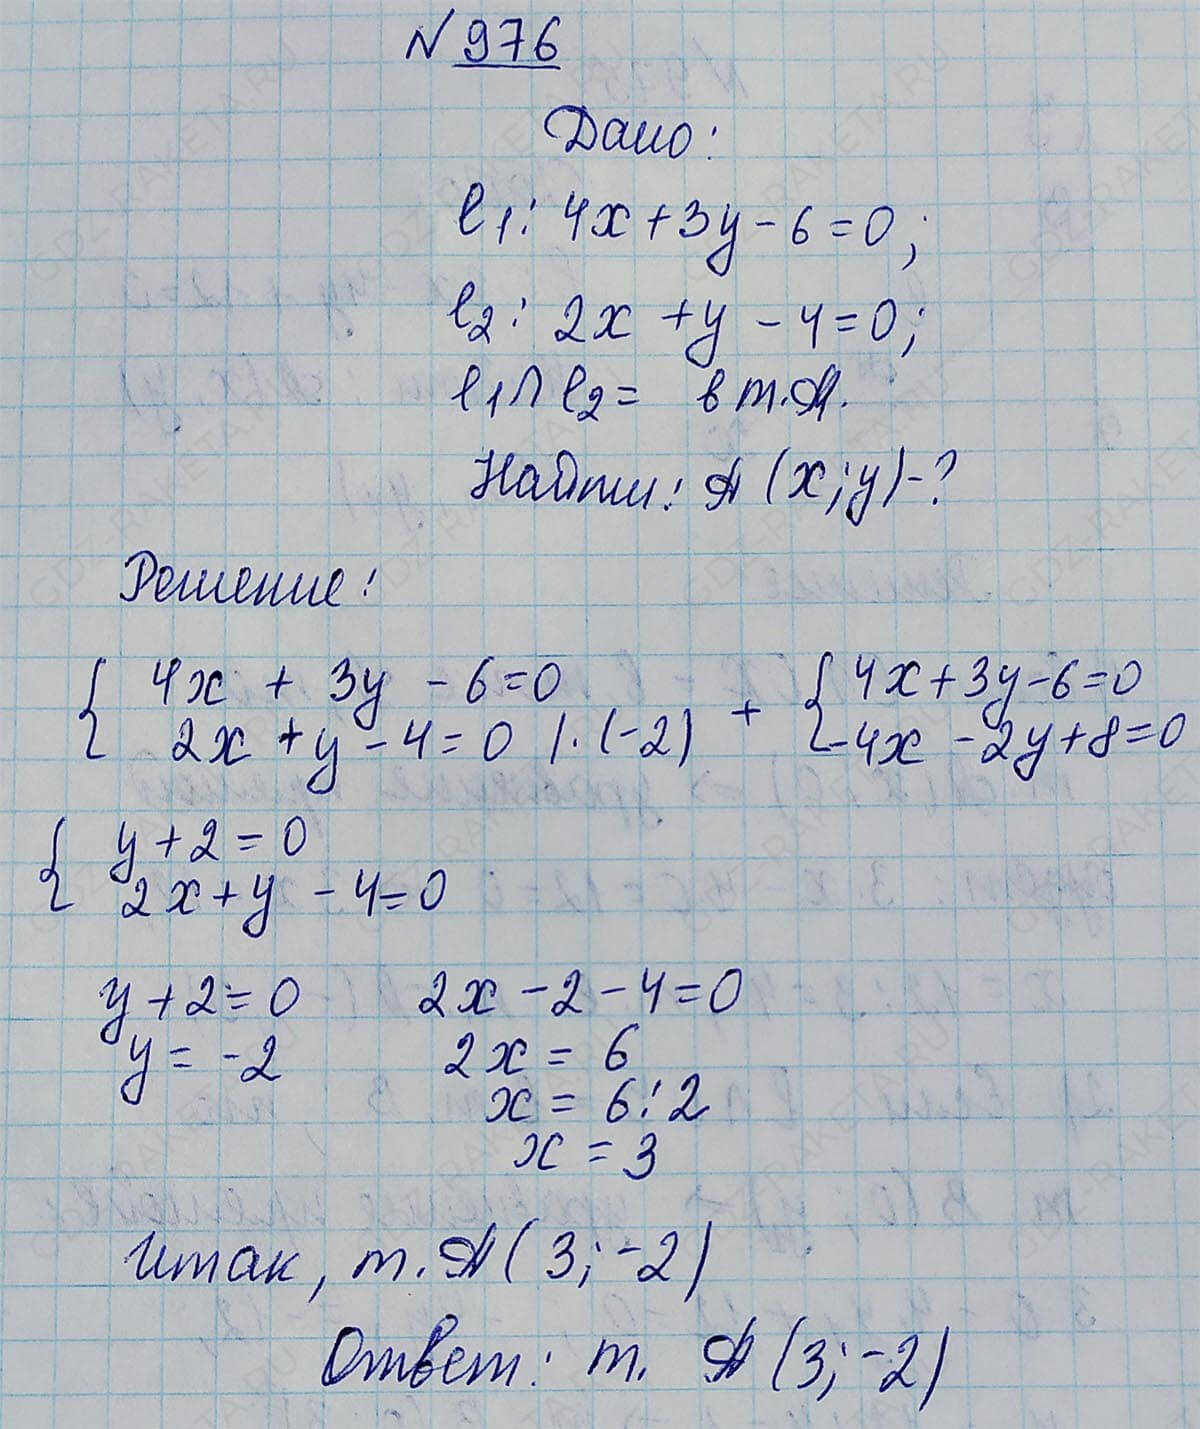 № 976
Дано:
l₁: 4x + 3y - 6 = 0;
l₂: 2x + y - 4 = 0;
l₁ ∩ l₂ = в т. A.
Найти: A (x; y) - ?
Решение:
{ 4x + 3y - 6 = 0
2x + y - 4 = 0 | · (-2)
+ { 4x + 3y - 6 = 0
-4x - 2y + 8 = 0
{ y + 2 = 0
2x + y - 4 = 0
y + 2 = 0
y = -2
2x - 2 - 4 = 0
2x = 6
x = 6 : 2
x = 3
Итак, т. A (3; -2)
Ответ: т. A (3; -2)
GDZ-RAKETA.RU